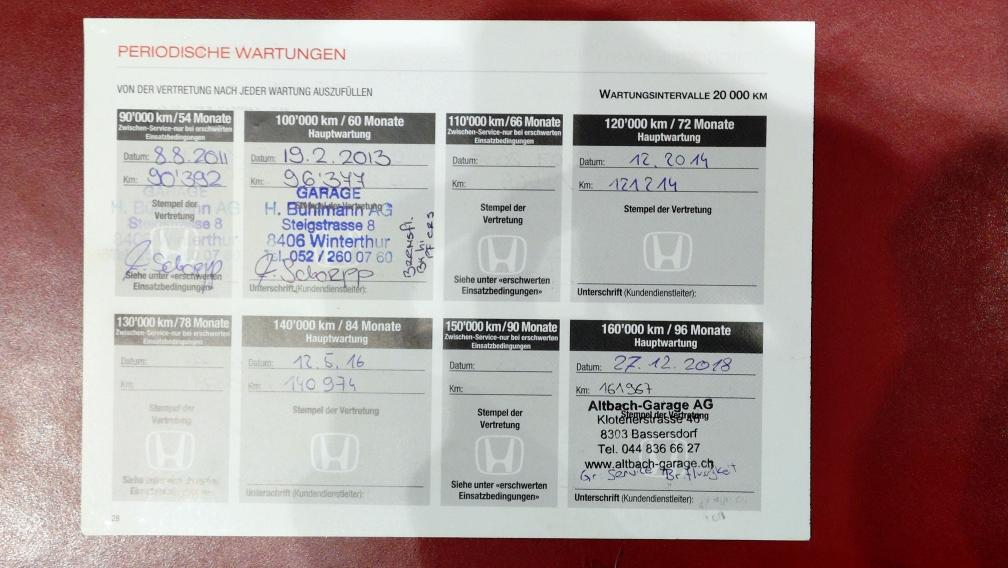 PERIODISCHE WARTUNGEN
VON DER VERTRETUNG NACH JEDER WARTUNG AUSZUFÜLLEN
WARTUNGSINTERVALLE 20 000 KM
90'000 km/54 Monate
Zwischen-Service-nur bei erschwerten
Einsatzbedingungen
Datum: 8.8.2011
Km: 90'392
Stempel der
Vertretung
GARAGE
H. Bühlmann AG
Steigstrasse 8
8406 Winterthur
Tel. 052 / 260 07 60
Siehe unter «erschwerten
Einsatzbedingungen»
100'000 km / 60 Monate
Hauptwartung
Datum: 19.2.2013
Km: 96'377
Stempel der Vertretung
GARAGE
H. Bühlmann AG
Steigstrasse 8
8406 Winterthur
Tel. 052 / 260 07 60
Bremsfl.
Unterschrift (Kundendienstleiter):
110'000 km/66 Monate
Zwischen-Service-nur bei erschwerten
Einsatzbedingungen
Datum:
Km:
Stempel der
Vertretung
Siehe unter «erschwerten
Einsatzbedingungen»
120'000 km / 72 Monate
Hauptwartung
Datum: 12.2014
Km: 121214
Stempel der Vertretung
Unterschrift (Kundendienstleiter):
130'000 km/78 Monate
Zwischen-Service-nur bei erschwerten
Einsatzbedingungen
Datum:
Km:
Stempel der
Vertretung
Siehe unter «erschwerten
Einsatzbedingungen»
140'000 km / 84 Monate
Hauptwartung
Datum: 12.5.16
Km: 140974
Stempel der Vertretung
Unterschrift (Kundendienstleiter):
150'000 km/90 Monate
Zwischen-Service-nur bei erschwerten
Einsatzbedingungen
Datum:
Km:
Stempel der
Vertretung
Siehe unter «erschwerten
Einsatzbedingungen»
160'000 km / 96 Monate
Hauptwartung
Datum: 27.12.2018
Km: 161967
Stempel der Vertretung
Altbach-Garage AG
Klotenerstrasse 46
8303 Bassersdorf
Tel. 044 836 66 27
www.altbach-garage.ch
Gr. Service + Br. flüssigkeit
Unterschrift (Kundendienstleiter):
28